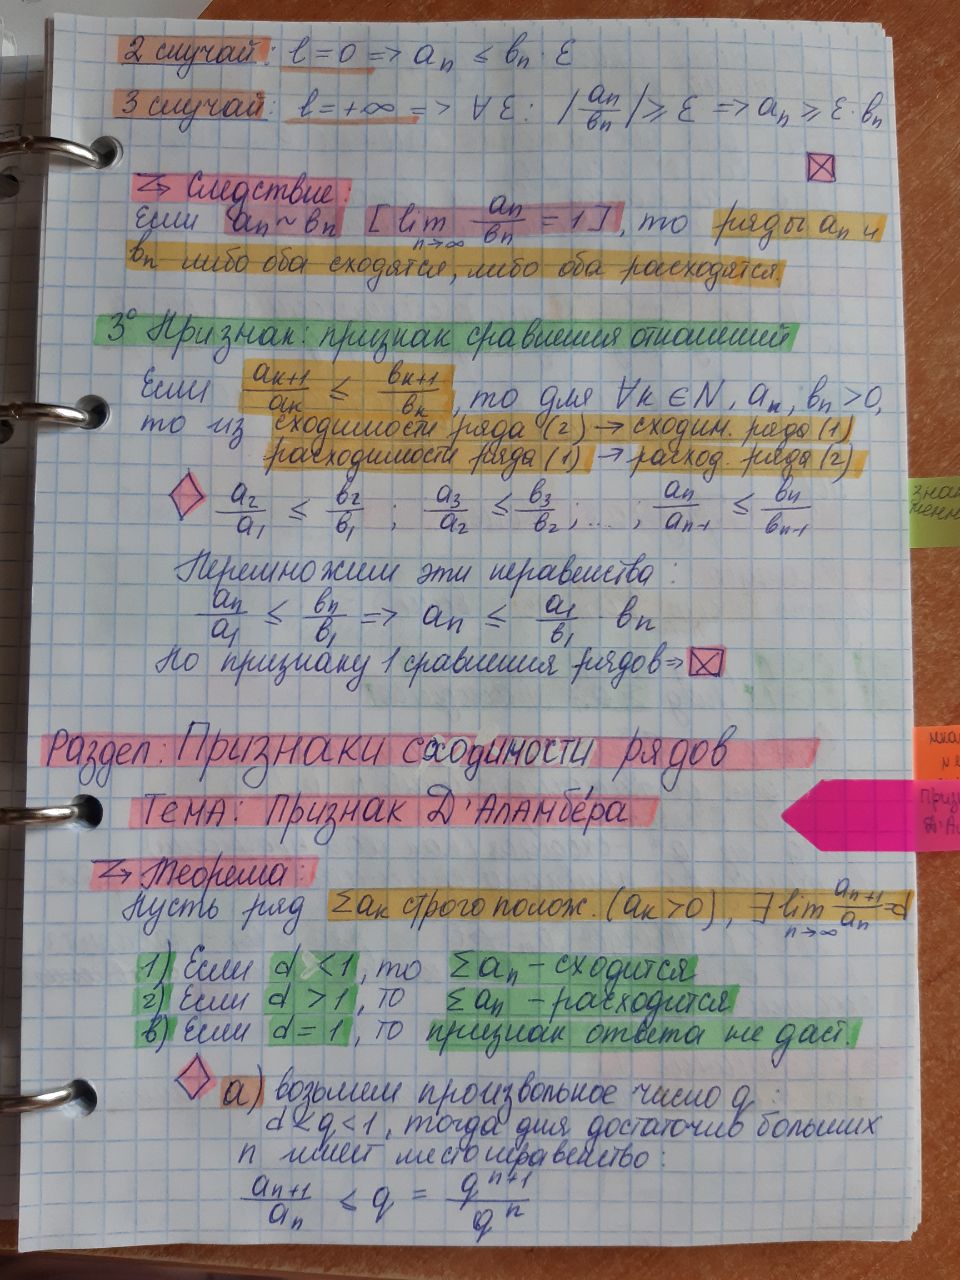 2 случай: l = 0 => aₙ ≤ вₙ · ℰ
3 случай: l = +∞ => ∀ ℰ: |aₙ/вₙ| ≥ ℰ => aₙ ≥ ℰ · вₙ
Следствие:
Если aₙ ~ вₙ [lim n→∞ aₙ/вₙ = 1], то ряды aₙ и
вₙ либо оба сходятся, либо оба расходятся.
3° Признак: признак сравнения отношений
Если aₖ₊₁/aₖ ≤ вₖ₊₁/вₖ, то для ∀k ∈ N, aₙ, вₙ > 0,
то из сходимости ряда (2) → сходим. ряда (1)
расходимости ряда (1) → расход. ряда (2)
a₂/a₁ ≤ в₂/в₁ ; a₃/a₂ ≤ в₃/в₂ ; ... ; aₙ/aₙ₋₁ ≤ вₙ/вₙ₋₁
Перемножим эти неравенства:
aₙ/a₁ ≤ вₙ/в₁ => aₙ ≤ a₁/в₁ · вₙ
По признаку 1 сравнения рядов =>
Раздел: Признаки сходимости рядов
Тема: Признак Д'Аламбéра
Теорема:
Пусть ряд Σaₖ строго полож. (aₖ > 0), ∃ lim n→∞ aₙ₊₁/aₙ = d
1) Если d < 1, то Σaₙ – сходится
2) Если d > 1, то Σaₙ – расходится
в) Если d = 1, то признак ответа не даст.
а) возьмем произвольное число q :
d < q < 1, тогда для достаточно больших
n имеет место неравенство:
aₙ₊₁/aₙ ≤ q = qⁿ⁺¹/qⁿ